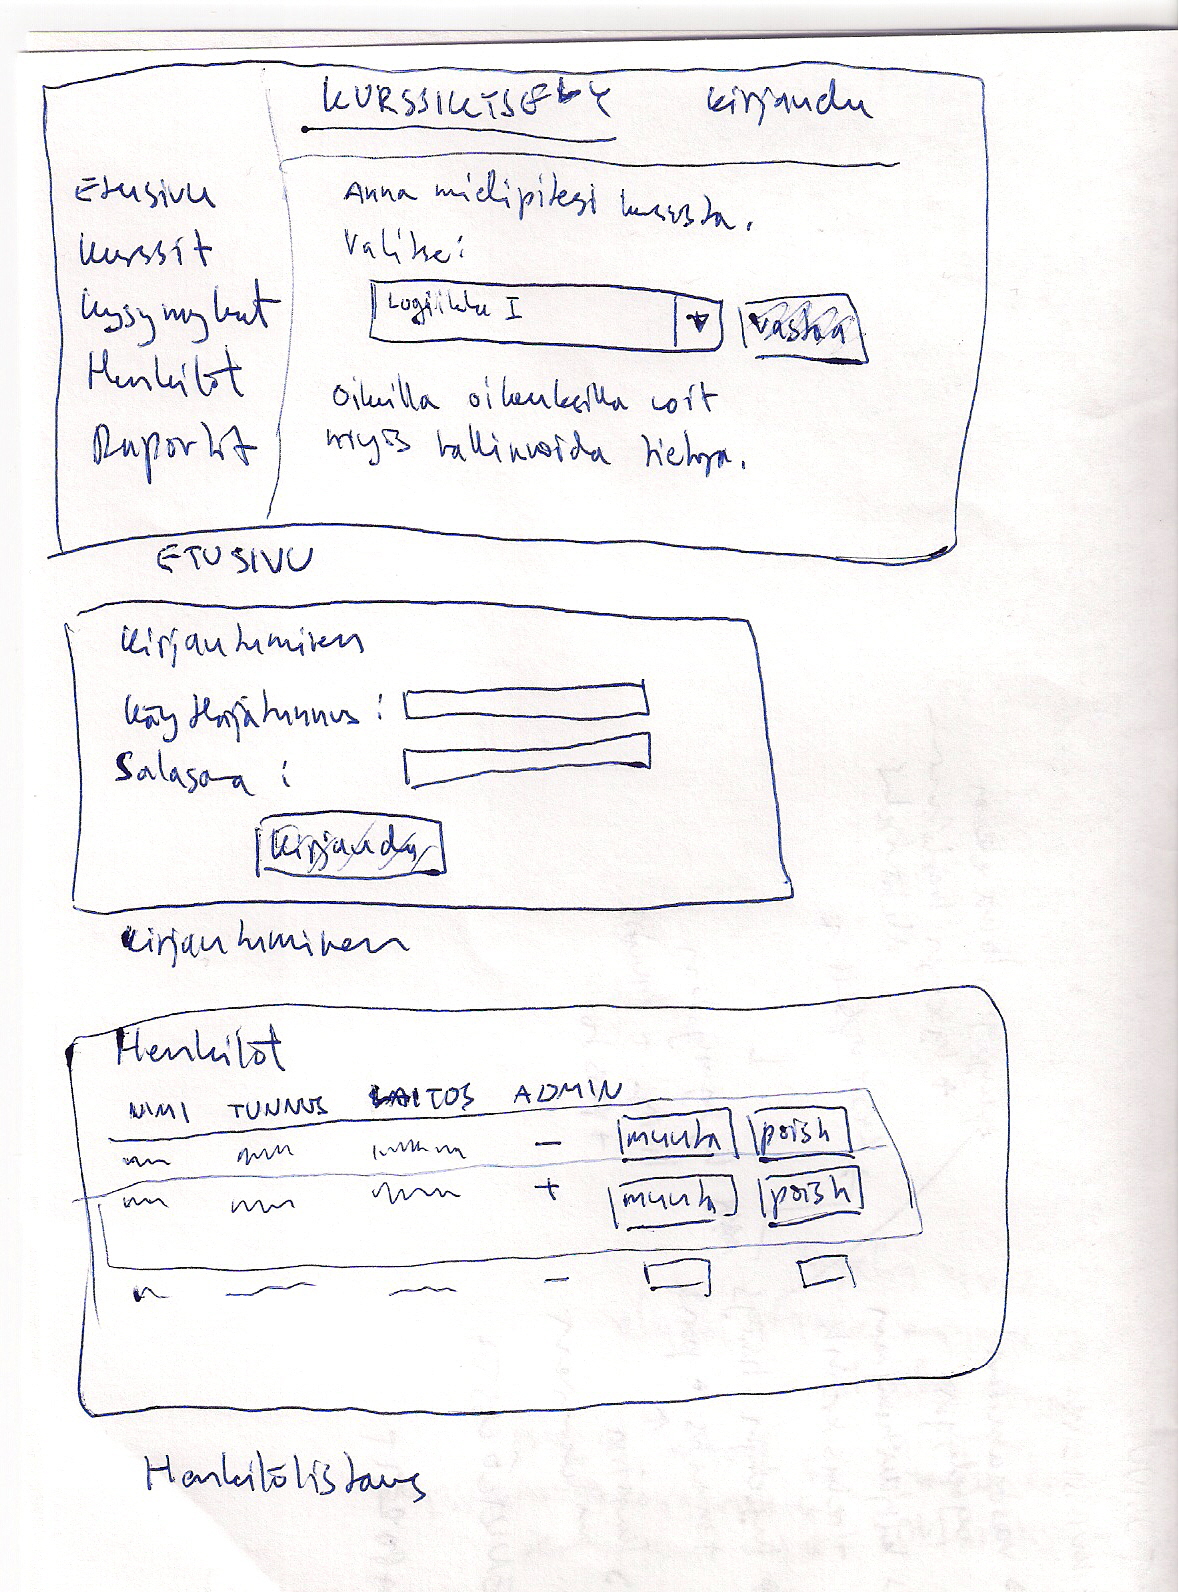 KURSSIKYSELY kirjaudu
Etusivu
Kurssit
Kysymykset
Henkilöt
Raportit
Anna mielipiteesi kurssista.
Valitse:
Logiikka I
Vastaa
Oikeilla oikeuksilla voit
myös hallinnoida tietoja.
ETUSIVU
Kirjautuminen
Käyttäjätunnus:
Salasana:
Kirjaudu
Kirjautuminen
Henkilöt
NIMI TUNNUS LAITOS ADMIN
- muuta poista
+ muuta poista
-
Henkilölistaus